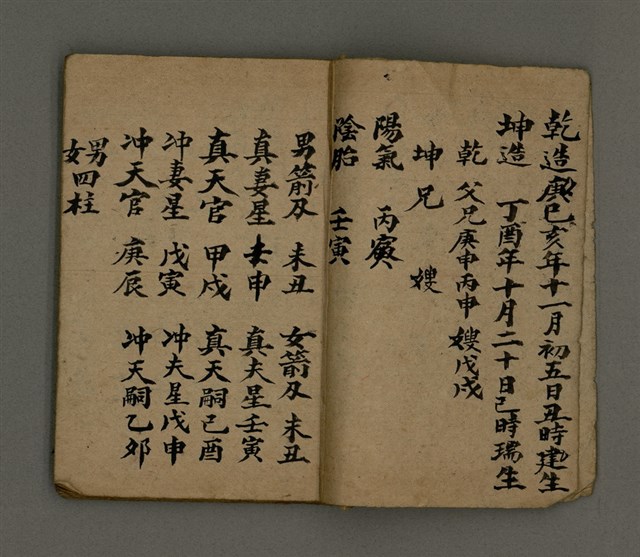 乾造己亥年十一月初五日丑時建生
坤造 丁酉年十月二十日巳時瑞生
乾 父兄庚申丙申 嫂戊戌
坤兄 嫂
陽氣 丙寅
陰胎 壬寅
男箭刃 未丑 女箭刃 未丑
真妻星 壬申 真夫星壬寅
真天官 甲戌 真天嗣己酉
冲妻星 戊寅 冲夫星戊申
冲天官 庚辰 冲天嗣乙卯
男女四柱